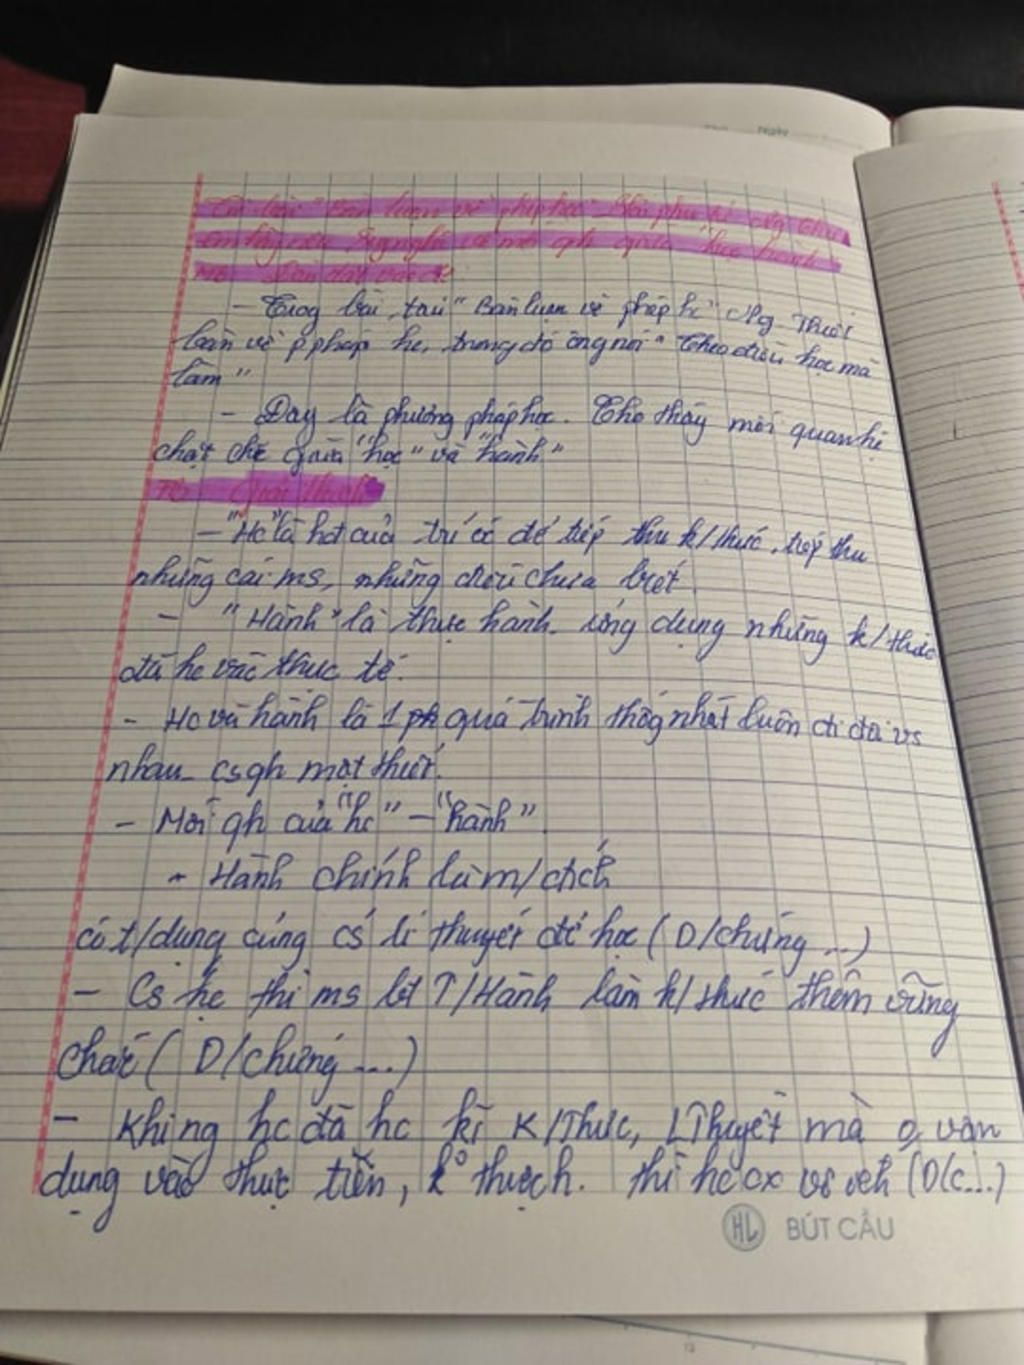 Ngày
Từ bài "Bàn luận về phép học"
em hãy nêu suy nghĩ về mối qh giữa "học hành"
MB
- Trog bài tấu "Bàn luận về phép hc" Ng Thiếp
luận về p pháp hc, trong đó ông nói "Theo điều học mà
làm"
- Đây là phương pháp học. Cho thấy mối quan hệ
chặt chẽ giữa "học" và "hành"
TB Giải thích
- "Hc" là hđ của trí óc để tiếp thu k/thức, tiếp thu
những cái ms, những điều chưa biết.
- "Hành" là thực hành. ứng dụng những k/thức
đã hc vào thực tế.
- Hc và hành là 1 quá trình thốg nhất luôn đi đôi vs
nhau cs qh mật thiết.
- Mối qh của "hc" - "hành".
- Hành chính là m/đích
có t/dụng củng cố lí thuyết để học (D/chứng ...)
- Cs hc thì ms bt T/Hành làm k/thức thêm vững
chắc (D/chứng ...)
- Khi ng hc đã hc kĩ K/Thức, LThuyết mà o vận
dụng vào thực tiễn, k° thực h. thì hc cx vô ích (D/c...)
HL BÚT CẦU